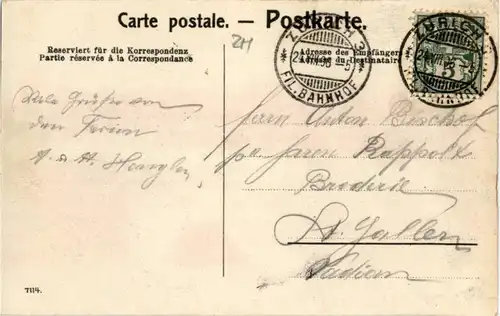 Carte postale. — Postkarte.
ZH
Reserviert für die Korrespondenz
Partie réservée à la Correspondance
Adresse des Empfängers
Adresse du Destinataire
ZÜRICH 3
FIL. BAHNHOF
ZÜRICH
5
Viele Grüsse von
den Ferien
Herrn Anton Bischof
Herren Rappolt
Broderie
St. Gallen
Vadian
7114.